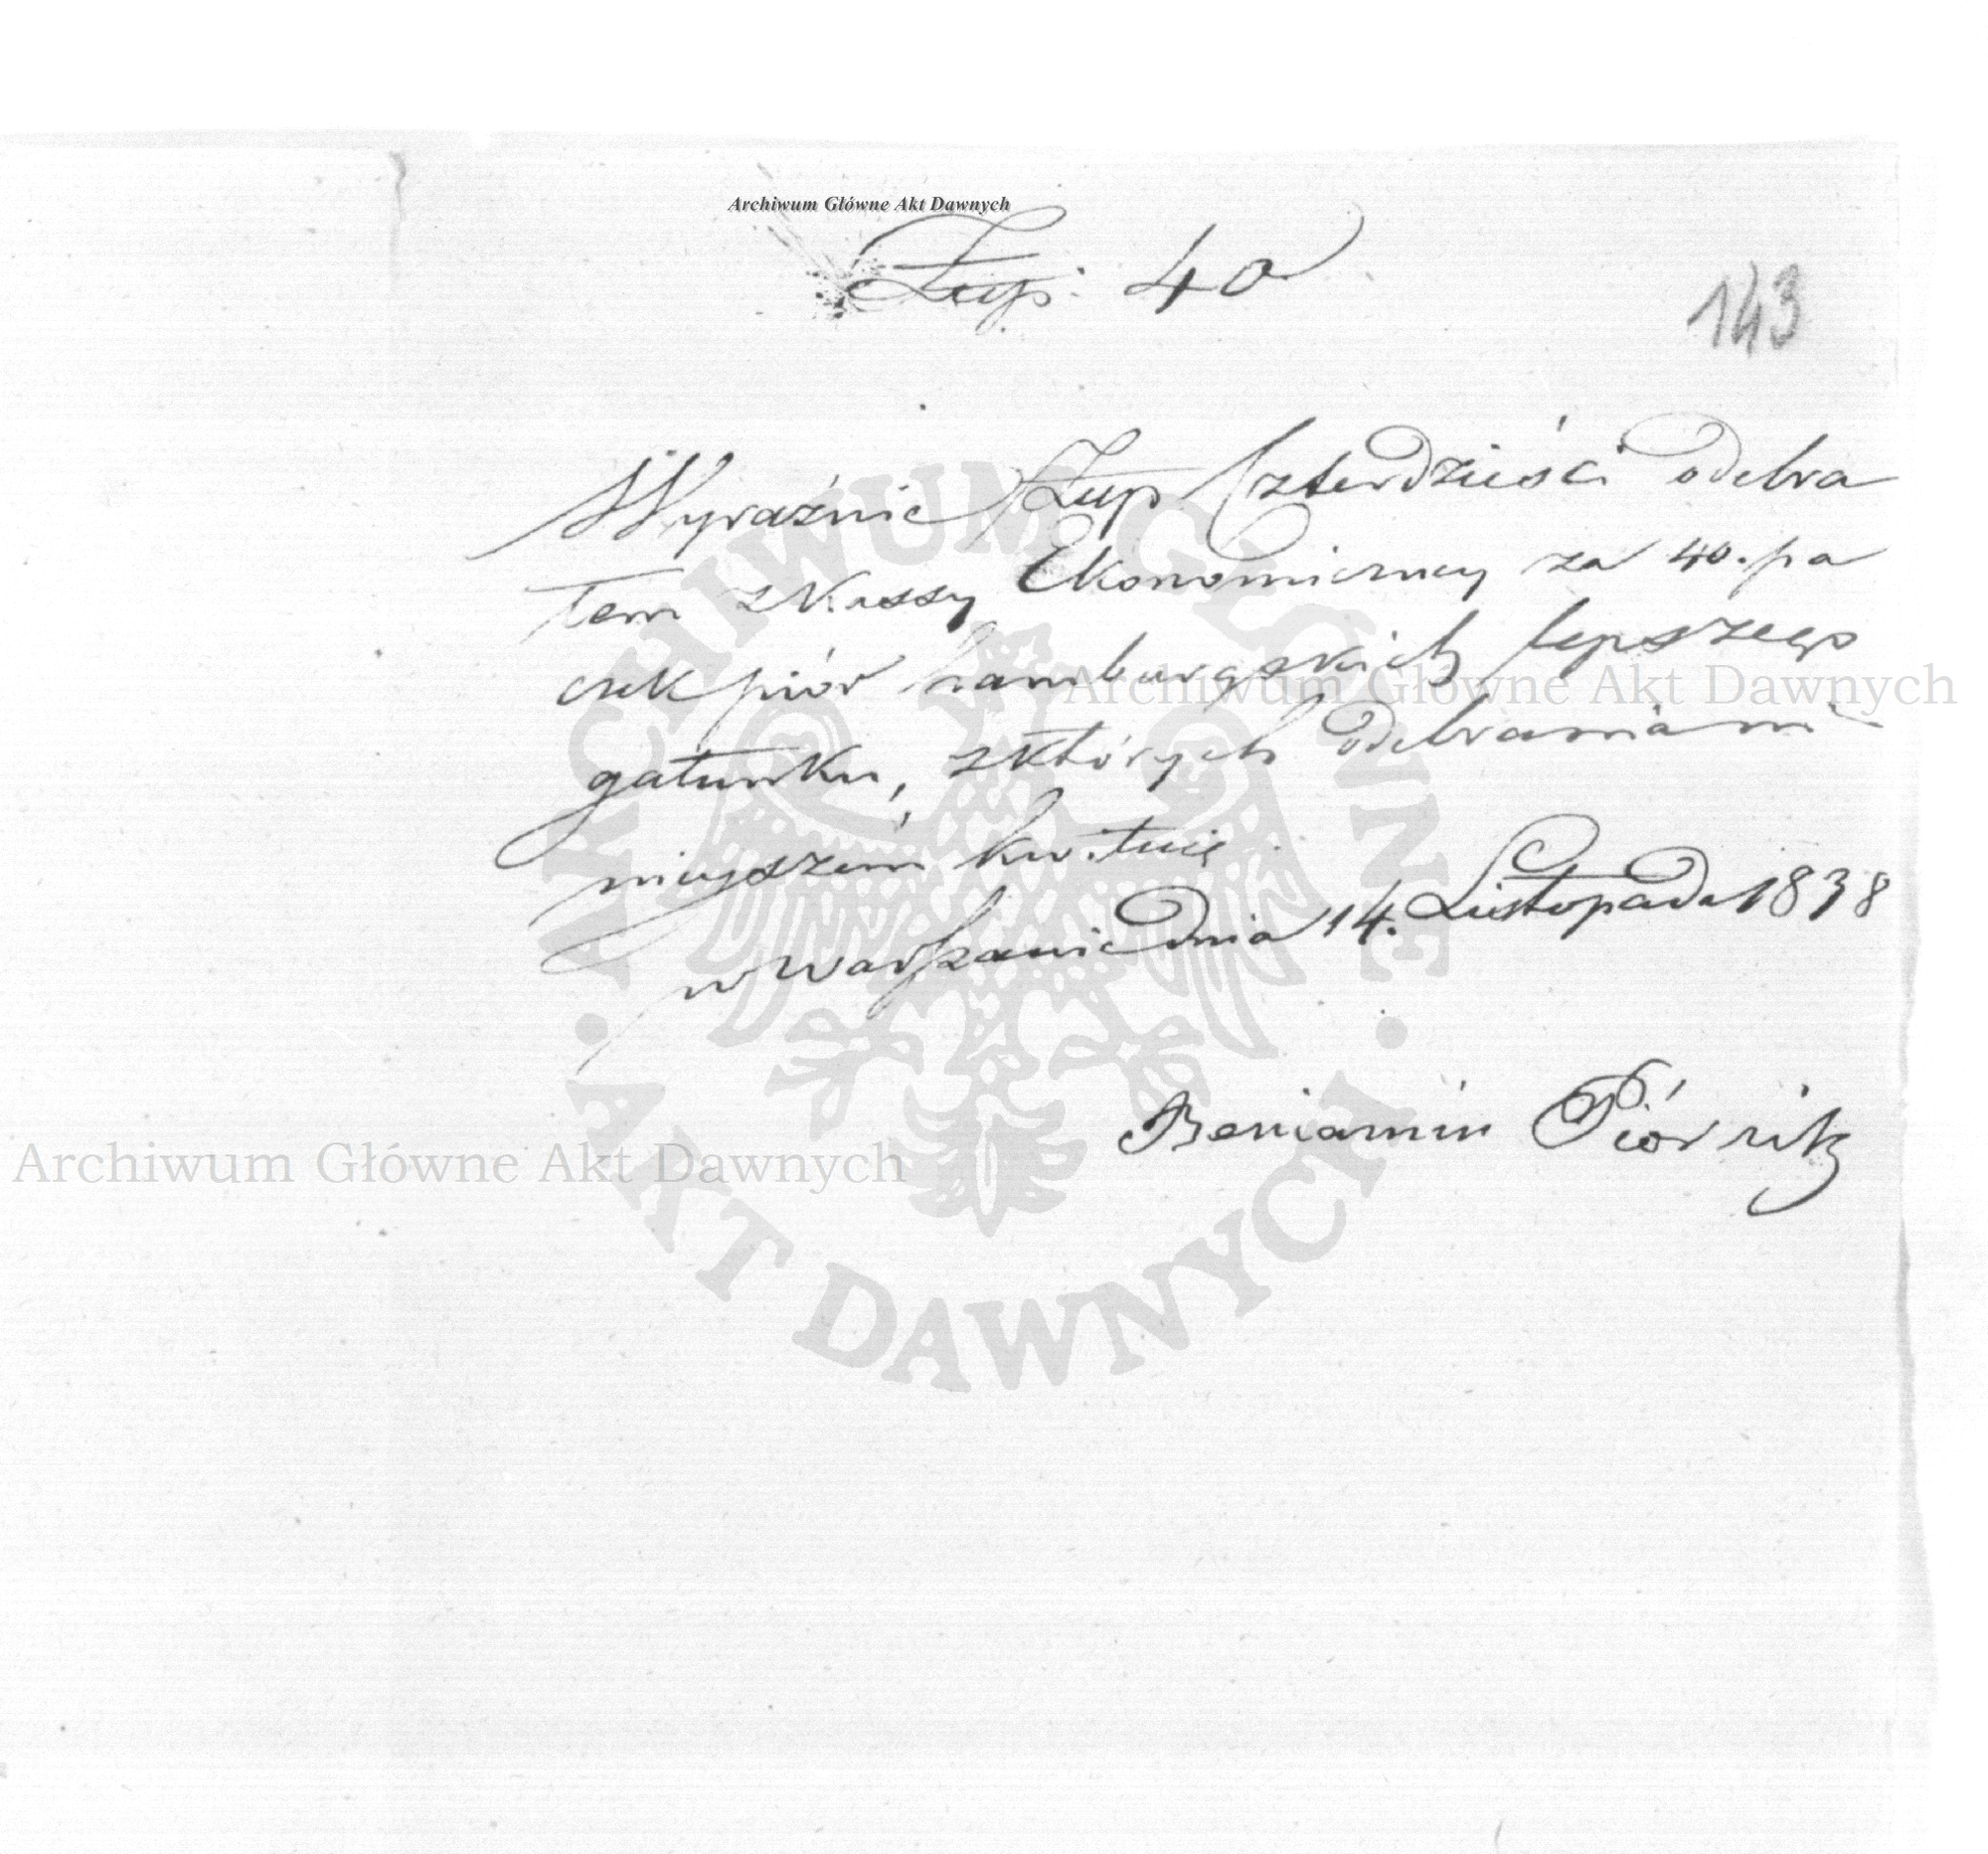 Archiwum Główne Akt Dawnych
Złłp: 40
143
Wyraźnie Złłp Czterdzieści odebra
łem z Kassy Ekonomiczney za 40. pa
czek piór hamburgskich lepszego
gatunku, z których odebrania ni
nieyszém kwituię
w Warszawie Dnia 14. Listopada 1838
Beniamin Piórnik
ARCHIWUM GŁÓWNE
AKT DAWNYCH
Archiwum Główne Akt Dawnych
Archiwum Główne Akt Dawnych